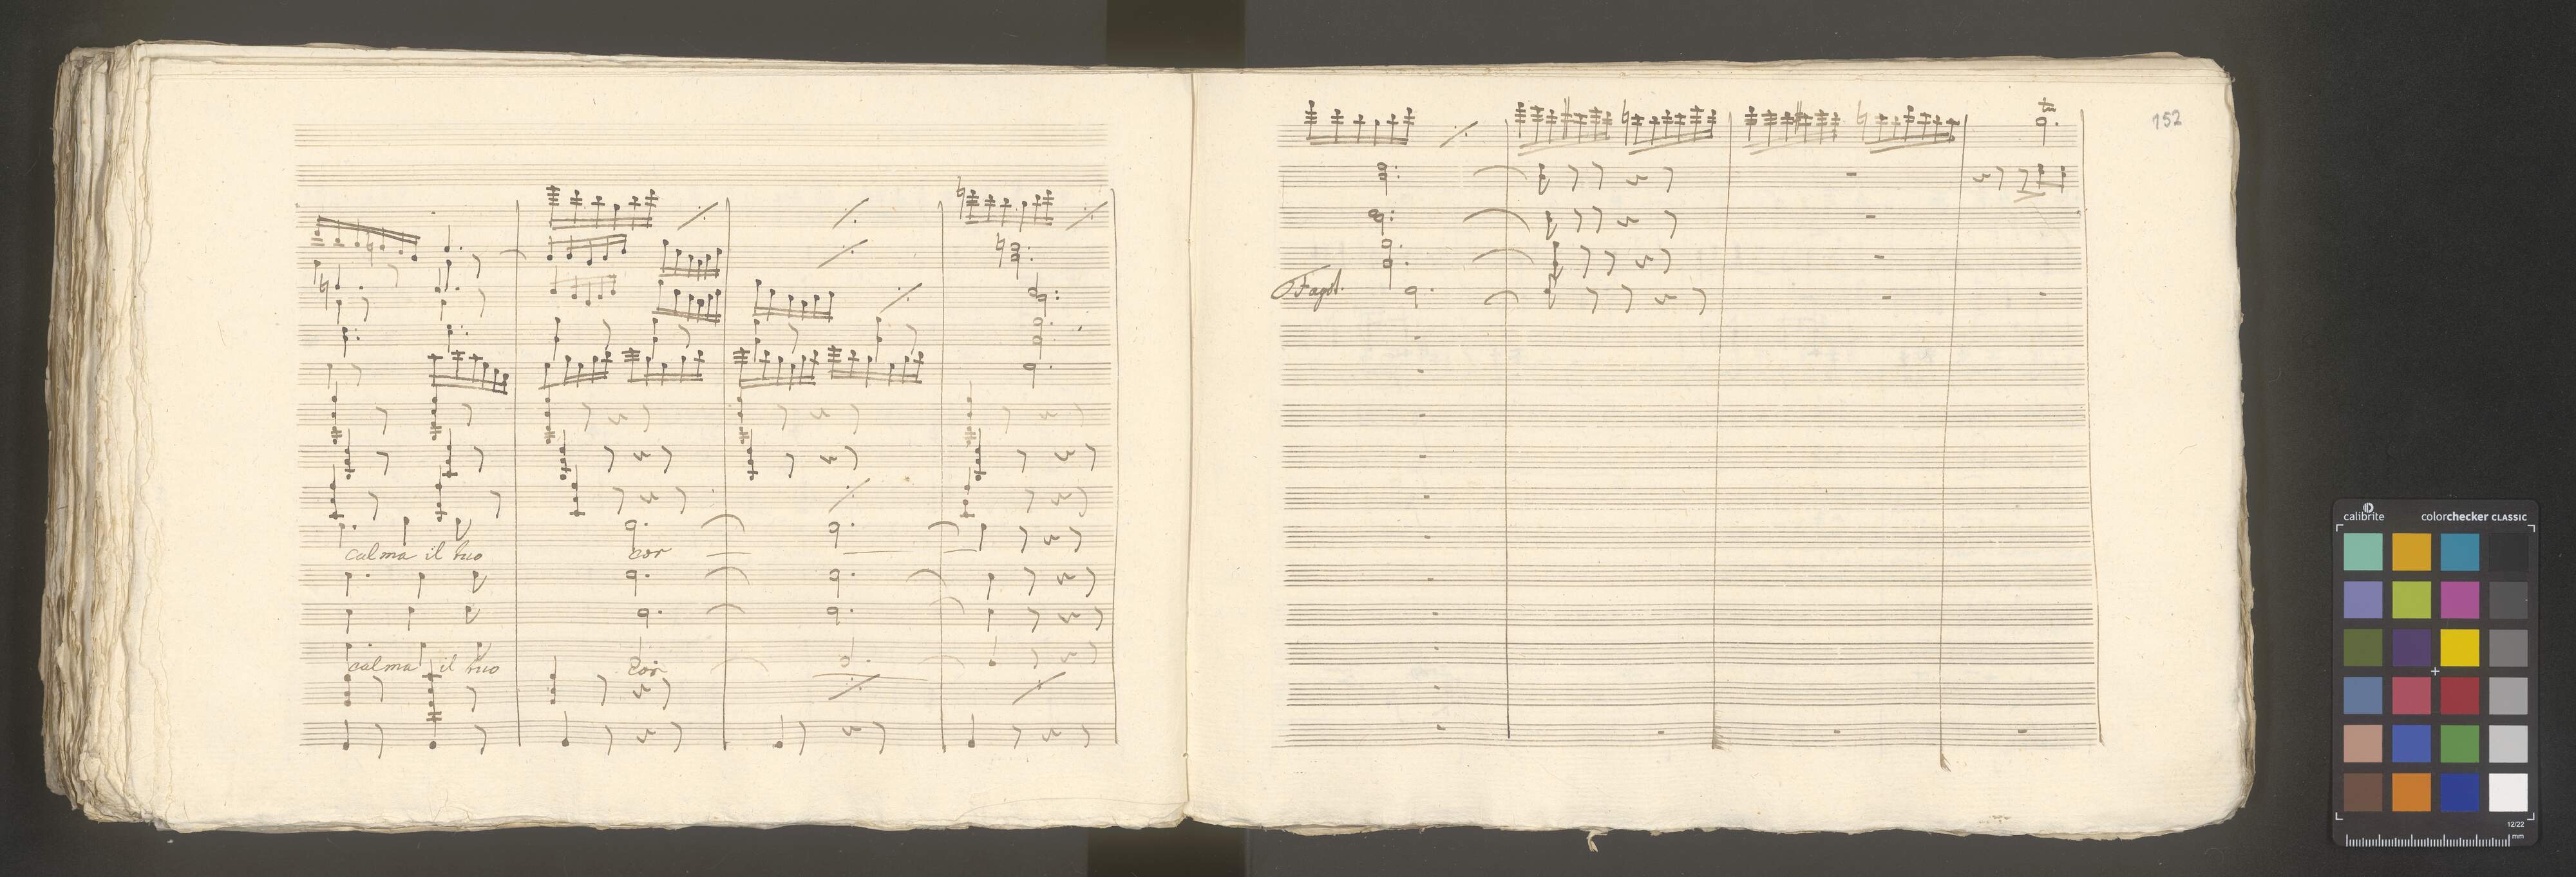 calma il tuo cor
calma il tuo cor
152
tr
Fagot.
calibrite colorchecker CLASSIC
12/22
mm